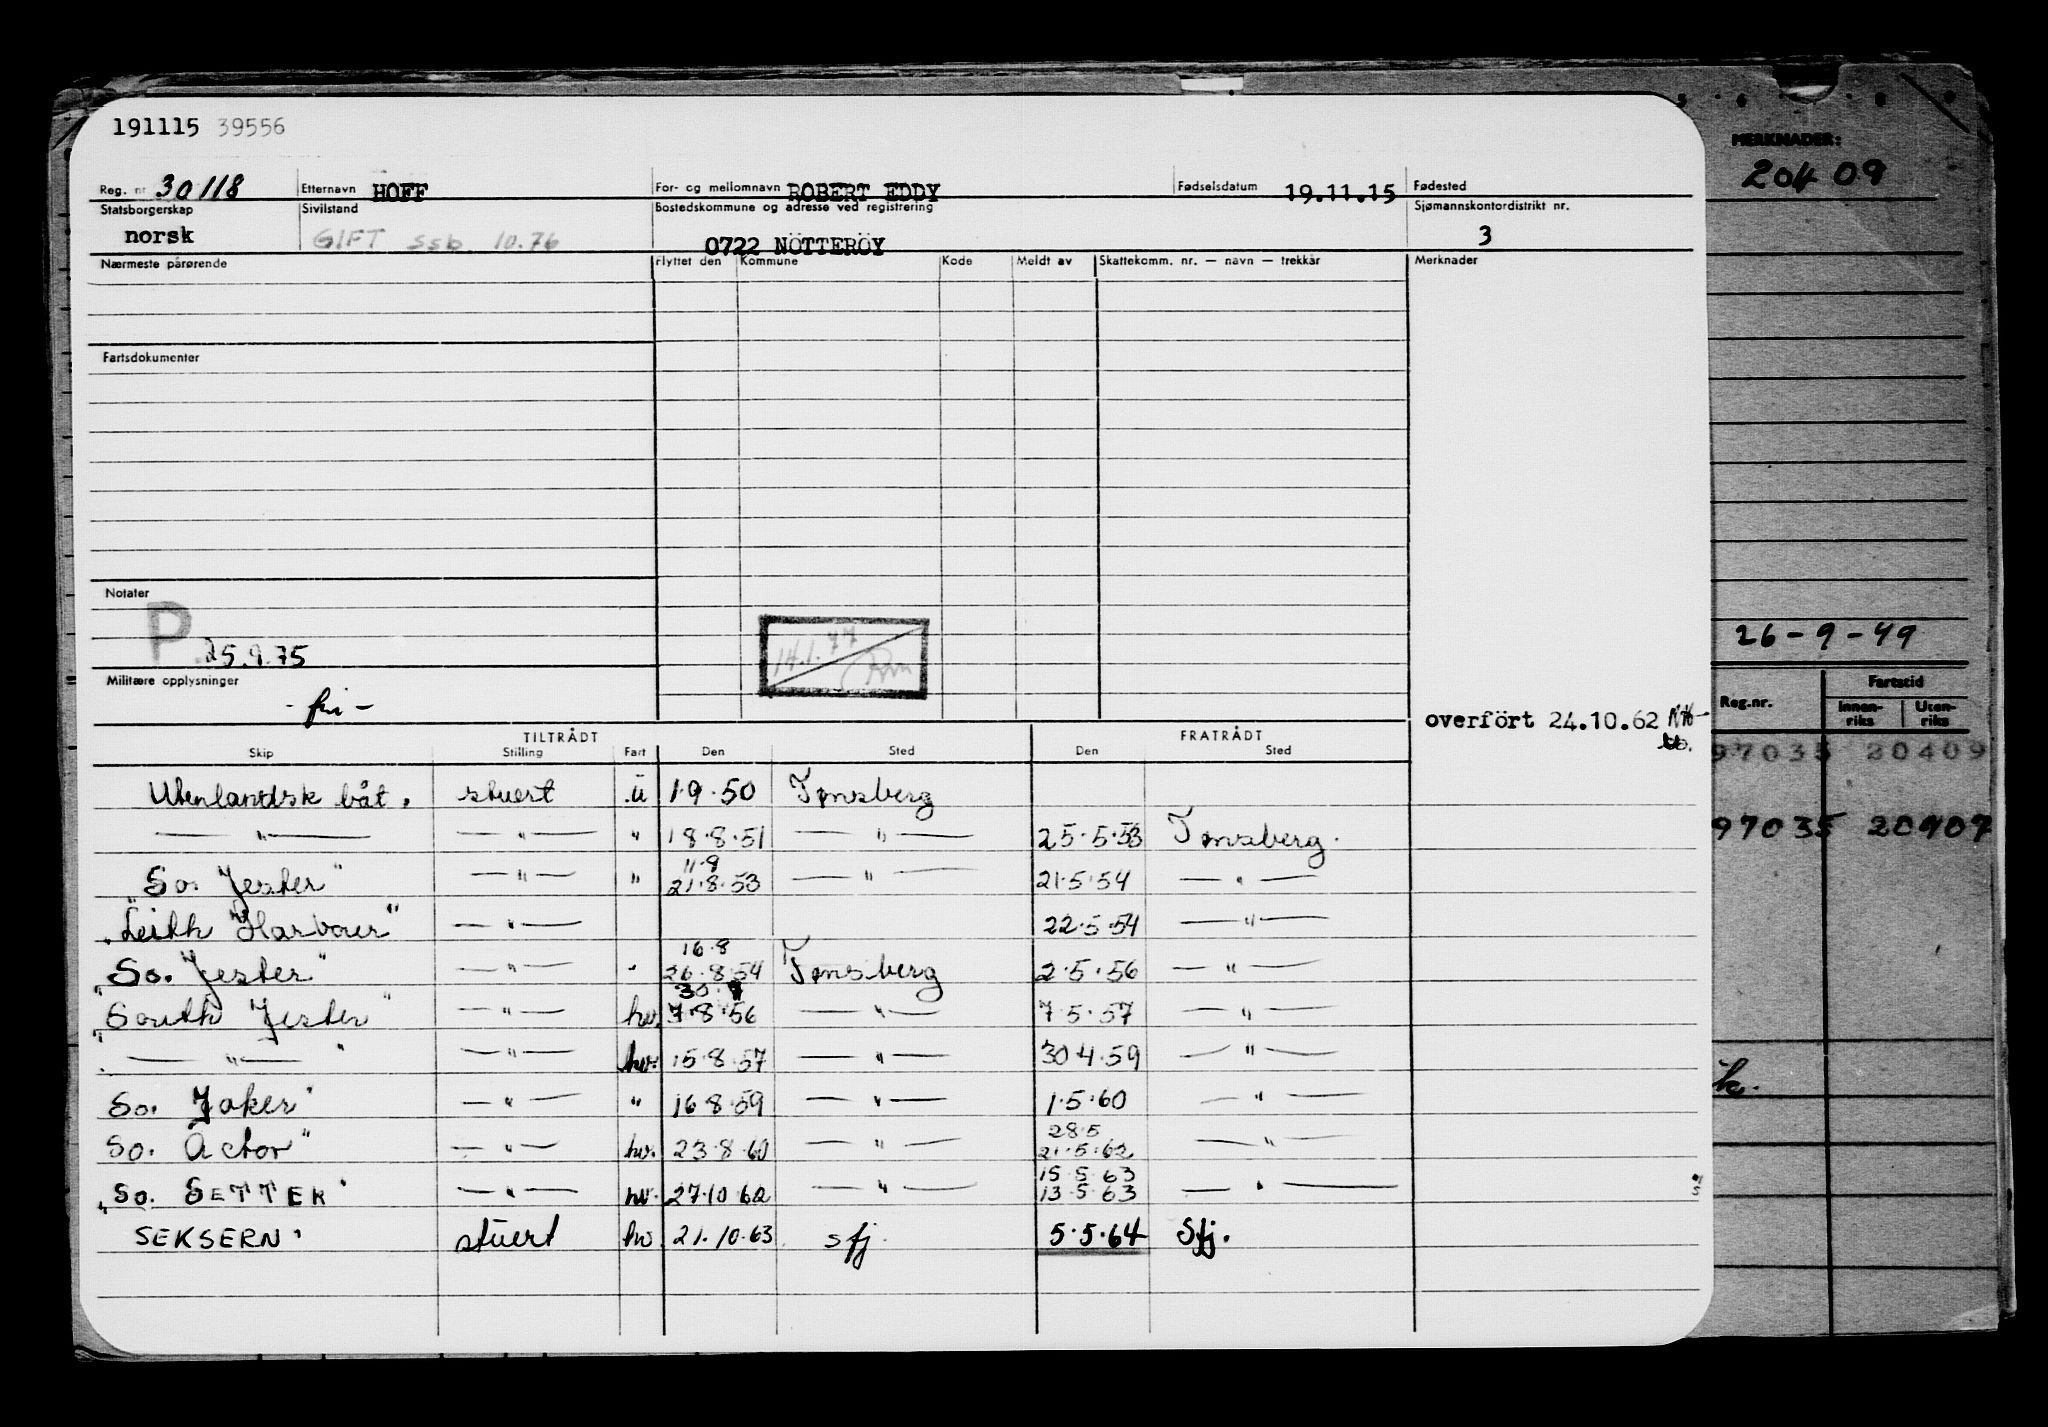 191115 39556
MERKNADER:
20409
Reg. nr 30118 Etternavn HOFF For- og mellomnavn ROBERT EDDY Fødselsdatum 19.11.15 Fødested
Statsborgerskap Sivilstand Bostedskommune og adresse ved registrering Sjømannskontordistrikt nr.
norsk GIFT ssb. 10.76 0722 NÖTTERÖY 3
Nærmeste pårørende Flyttet den Kommune Kode Meldt av Skattekomm. nr. — navn — trekkår Merknader
Fartsdokumenter
Notater
P 25.9.75
14.1.77
26-9-49
Militære opplysninger
- fri -
Reg.nr. Fartstid
Innen-riks Uten-riks
overfört 24.10.62
97035 20409
97035 20409
TILTRÅDT FRATRÅDT
Skip Stilling Fart Den Sted Den Sted
Utenlandsk båt. stuert u 1.9.50 Tønsberg
—"— —"— " 18.8.51 —"— 25.5.53 Tønsberg.
11.8
So. Jester" —"— " 21.8.53 —"— 21.5.54 —"—
"Leith Harbour" —"— 22.5.54 —"—
16.8
So. Jester" —"— " 26.8.54 Tønsberg 2.5.56 —"—
"South Jester" —"— hv. 7.8.56 —"— 7.5.57 —"—
" —"— " —"— hv. 15.8.57 —"— 30.4.59 —"—
So. Joker" —"— " 16.8.59 —"— 1.5.60 —"—
28.5
So. Actor" —"— hv. 23.8.60 —"— 21.5.62 —"—
15.5.63
"So. SETTER" —"— hv. 27.10.62 —"— 13.5.63 —"—
SEKSERN" stuert hv 21.10.63 sfj. 5.5.64 Sfj.